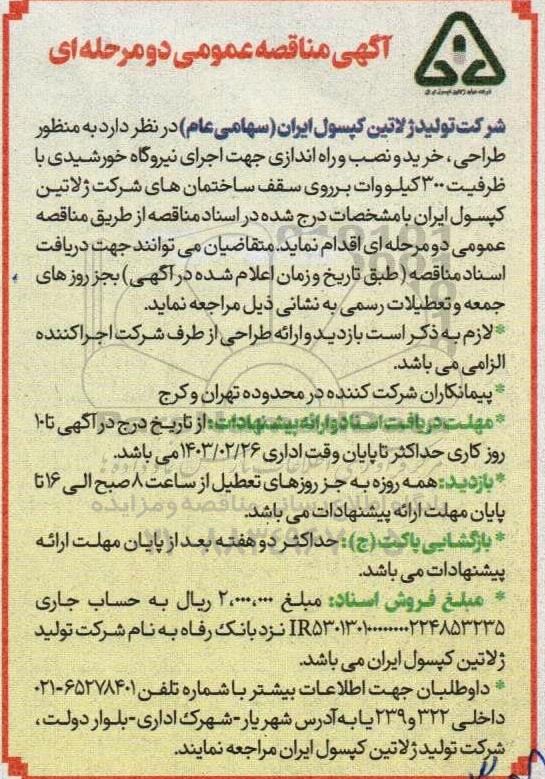 آگهی مناقصه عمومی دو مرحله ای
شرکت تولید ژلاتین کپسول ایران
شرکت تولید ژلاتین کپسول ایران (سهامی عام) در نظر دارد به منظور
طراحی ، خرید و نصب و راه اندازی جهت اجرای نیروگاه خورشیدی با
ظرفیت ۳۰۰ کیلو وات برروی سقف ساختمان های شرکت ژلاتین
کپسول ایران با مشخصات درج شده در اسناد مناقصه از طریق مناقصه
عمومی دو مرحله ای اقدام نماید. متقاضیان می توانند جهت دریافت
اسناد مناقصه (طبق تاریخ و زمان اعلام شده در آگهی) بجز روز های
جمعه و تعطیلات رسمی به نشانی ذیل مراجعه نماید.
* لازم به ذکر است بازدید و ارائه طراحی از طرف شرکت اجرا کننده
الزامی می باشد.
* پیمانکاران شرکت کننده در محدوده تهران و کرج
* مهلت دریافت اسناد و ارائه پیشنهادات: از تاریخ درج در آگهی تا ۱۰
روز کاری حداکثر تا پایان وقت اداری ۱۴۰۳/۰۲/۲۶ می باشد.
* بازدید: همه روزه به جز روزهای تعطیل از ساعت ۸ صبح الی ۱۶ تا
پایان مهلت ارائه پیشنهادات می باشد.
* بازگشایی پاکت (ج): حداکثر دو هفته بعد از پایان مهلت ارائه
پیشنهادات می باشد.
* مبلغ فروش اسناد: مبلغ ۲,۰۰۰,۰۰۰ ریال به حساب جاری
IR۵۳۰۱۳۰۱۰۰۰۰۰۰۰۰۲۲۴۸۵۳۲۳۵ نزد بانک رفاه به نام شرکت تولید
ژلاتین کپسول ایران می باشد.
* داوطلبان جهت اطلاعات بیشتر با شماره تلفن ۶۵۲۷۸۴۰۱-۰۲۱
داخلی ۳۲۲ و ۲۳۹ یا به آدرس شهریار-شهرک اداری-بلوار دولت ،
شرکت تولید ژلاتین کپسول ایران مراجعه نمایند.